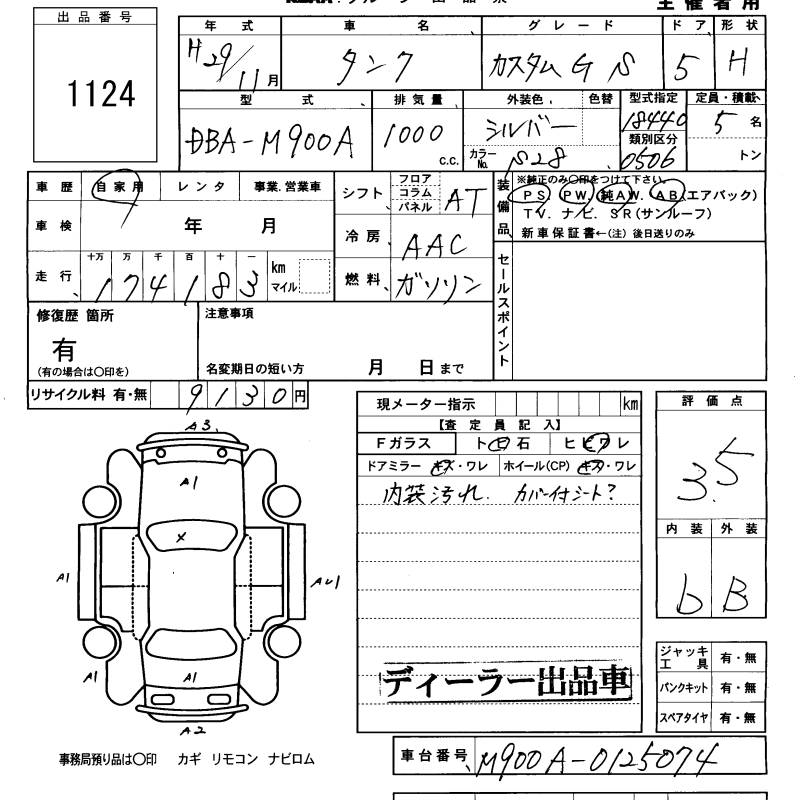 主催者用
出品番号
1124
年式 車名 グレード ドア 形状
H29/11月 タンク カスタムG S 5 H
型式 排気量 外装色 色替 型式指定 定員・積載
DBA-M900A 1000 c.c. シルバー 18440 5名
カラーNo. S28 類別区分 0506 トン
車歴 自家用 レンタ 事業.営業車
シフト フロア コラム パネル AT
装備品 ※純正のみ〇印をつけて下さい。
PS PW. 純AW. AB(エアバック)
TV. ナビ. SR(サンルーフ)
新車保証書←(注) 後日送りのみ
車検 年 月
冷房 AAC
走行 十万 万 千 百 十 一 km マイル
174183
燃料 ガソリン
セールスポイント
修復歴 箇所
有
(有の場合は〇印を)
注意事項
名変期日の短い方 月 日まで
リサイクル料 有・無 9130円
現メーター指示 km
【査定員記入】
Fガラス トビ石 ヒビワレ
ドアミラー キズ・ワレ ホイール(CP) キズ・ワレ
内装汚れ. カバー付シート?
評価点
3.5
内装 外装
b B
A3
A1
x
A1
AU1
A1
A1
A2
ディーラー出品車
ジャッキ工具 有・無
パンクキット 有・無
スペアタイヤ 有・無
事務局預り品は〇印 カギ リモコン ナビロム
車台番号 M900A-0125074